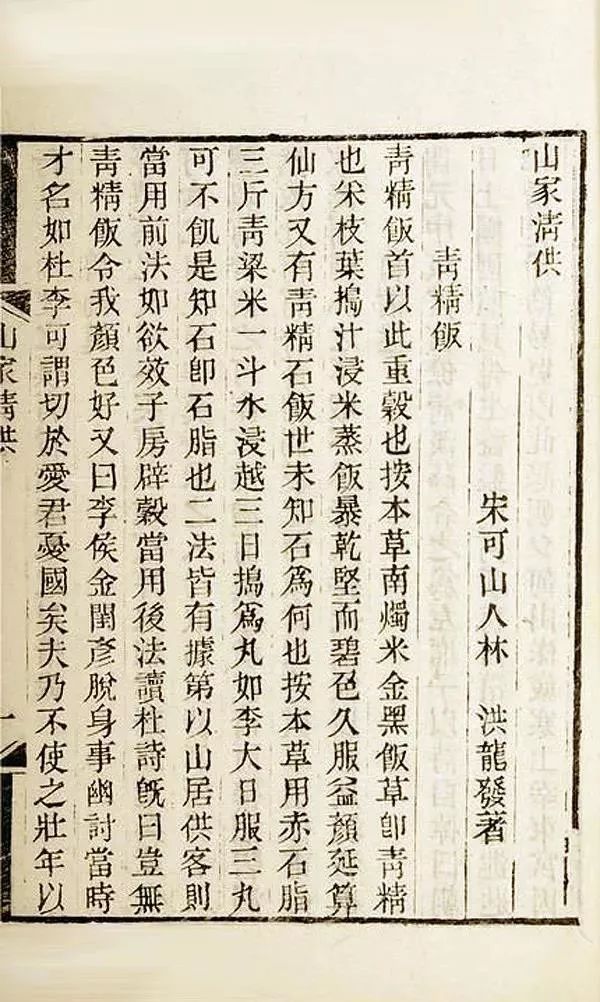 山家清供
宋可山人林　洪龍發著
靑精飯
靑精飯首以此重穀也按本草南燭米金黑飯草卽靑精
也采枝葉搗汁浸米蒸飯暴乾堅而碧色久服益顏延算
仙方又有靑精石飯世未知石爲何也按本草用赤石脂
三斤靑粱米一斗水浸越三日搗爲丸如李大日服三丸
可不飢是知石卽石脂也二法皆有據第以山居供客則
當用前法如欲效子房辟穀當用後法讀杜詩旣曰豈無
靑精飯令我顏色好又曰李侯金閨彥脫身事幽討當時
才名如杜李可謂切於愛君憂國矣夫乃不使之壯年以
山家清供
一